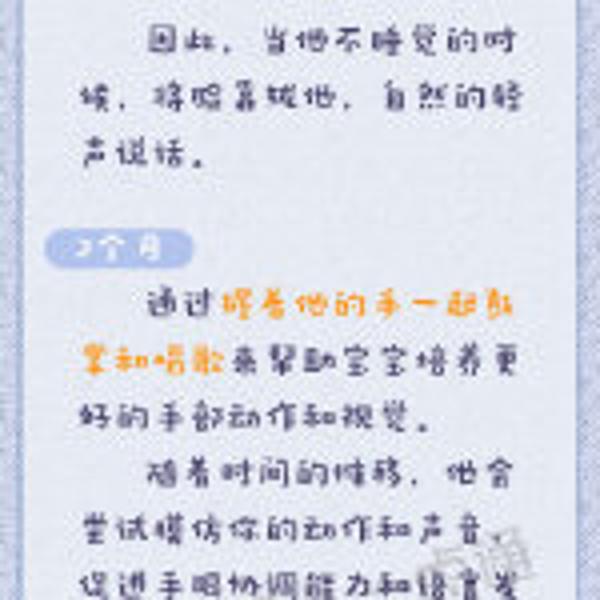 因此，当他不睡觉的时
候，将眼靠拢他，自然的轻
声说话。
2个月
通过握着他的手一起鼓
掌和唱歌来帮助宝宝培养更
好的手部动作和视觉。
随着时间的推移，他会
尝试模仿你的动作和声音，
促进手眼协调能力和语言发